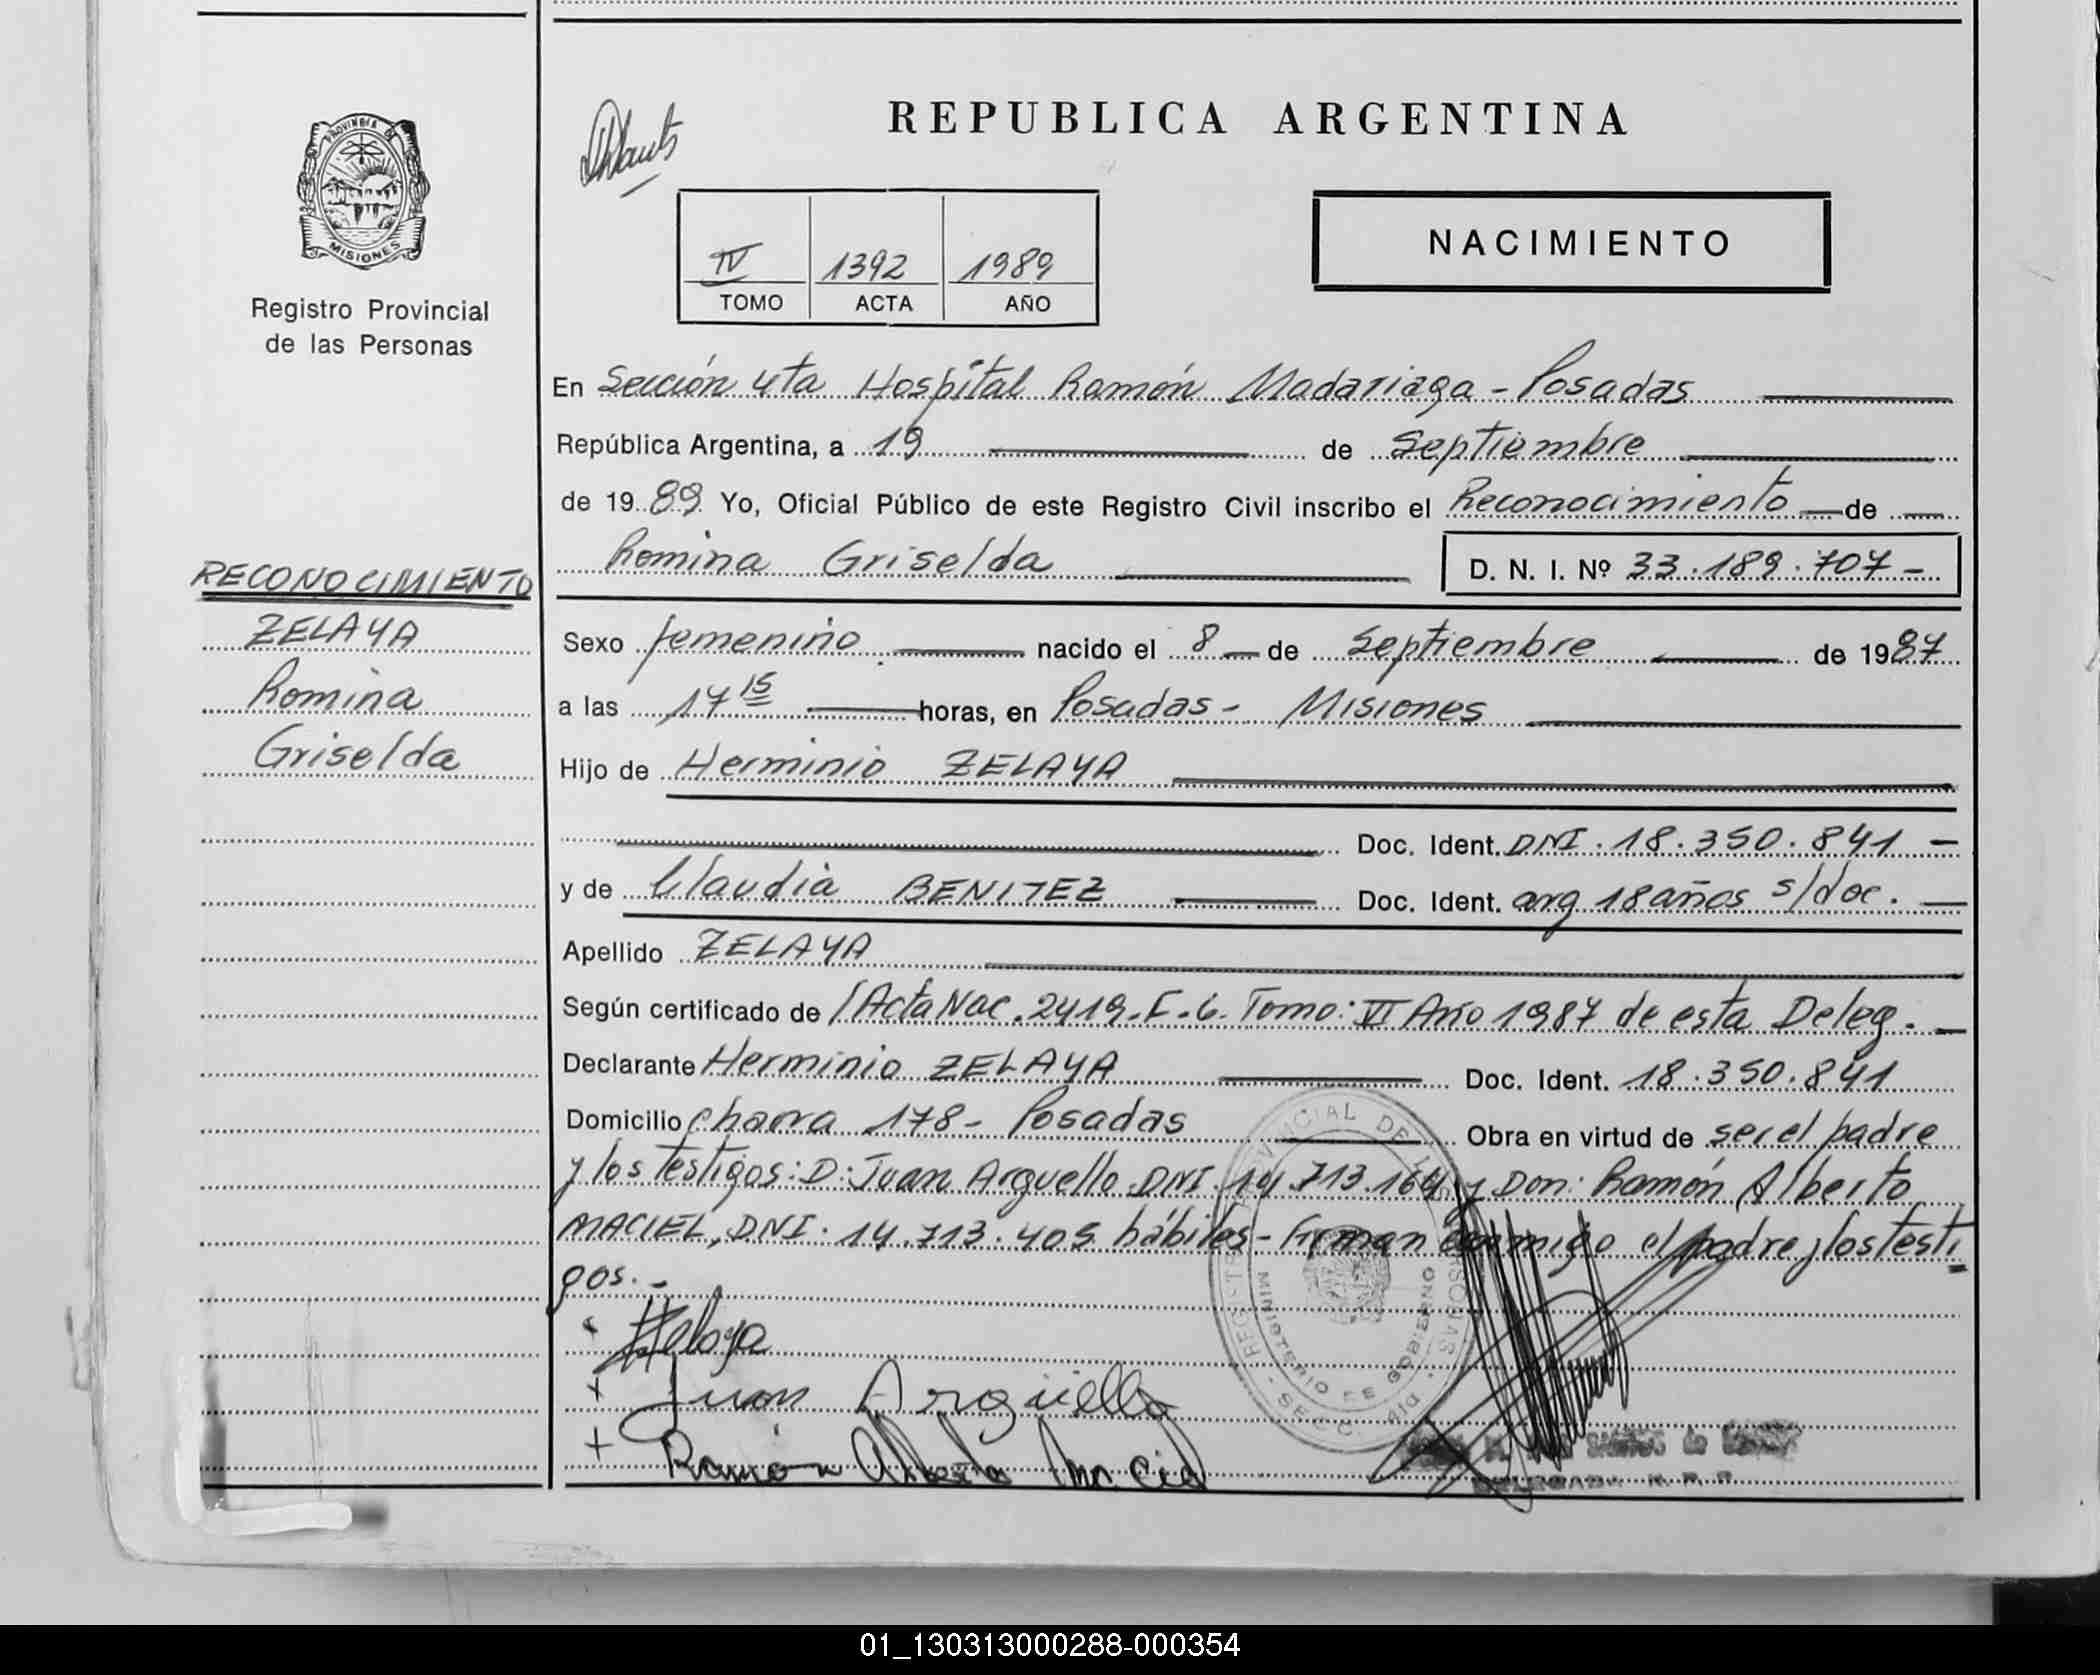 REPUBLICA ARGENTINA
PROVINCIA DE
MISIONES
Registro Provincial
de las Personas
IV 1392 1989
TOMO ACTA AÑO
NACIMIENTO
En Sección 4ta Hospital Ramón Madariaga - Posadas
República Argentina, a 19 de Septiembre
de 1989 Yo, Oficial Público de este Registro Civil inscribo el Reconocimiento de
Romina Griselda D. N. I. Nº 33.189.707-
RECONOCIMIENTO
ZELAYA
Romina
Griselda
Sexo femenino nacido el 8 de Septiembre de 1987
a las 17 15 horas, en Posadas - Misiones
Hijo de Herminio ZELAYA
Doc. Ident. DNI. 18.350.841 -
y de Claudia BENITEZ Doc. Ident. arg 18 años s/doc.
Apellido ZELAYA
Según certificado de Acta Nac. 2419. F. 6. Tomo: VI Año 1987 de esta Deleg.
Declarante Herminio ZELAYA Doc. Ident. 18.350.841
Domicilio chacra 178 - Posadas Obra en virtud de ser el padre
y los testigos: D: Juan Arguello DNI. 14.713.164 y Don: Ramón Alberto
MACIEL, DNI. 14.713.405 hábiles - Firman conmigo el padre y los testi
gos.-
HZelaya
+ Juan Argüello
+ Ramón Alberto Maciel
MINISTERIO DE GOBIERNO
01_130313000288-000354